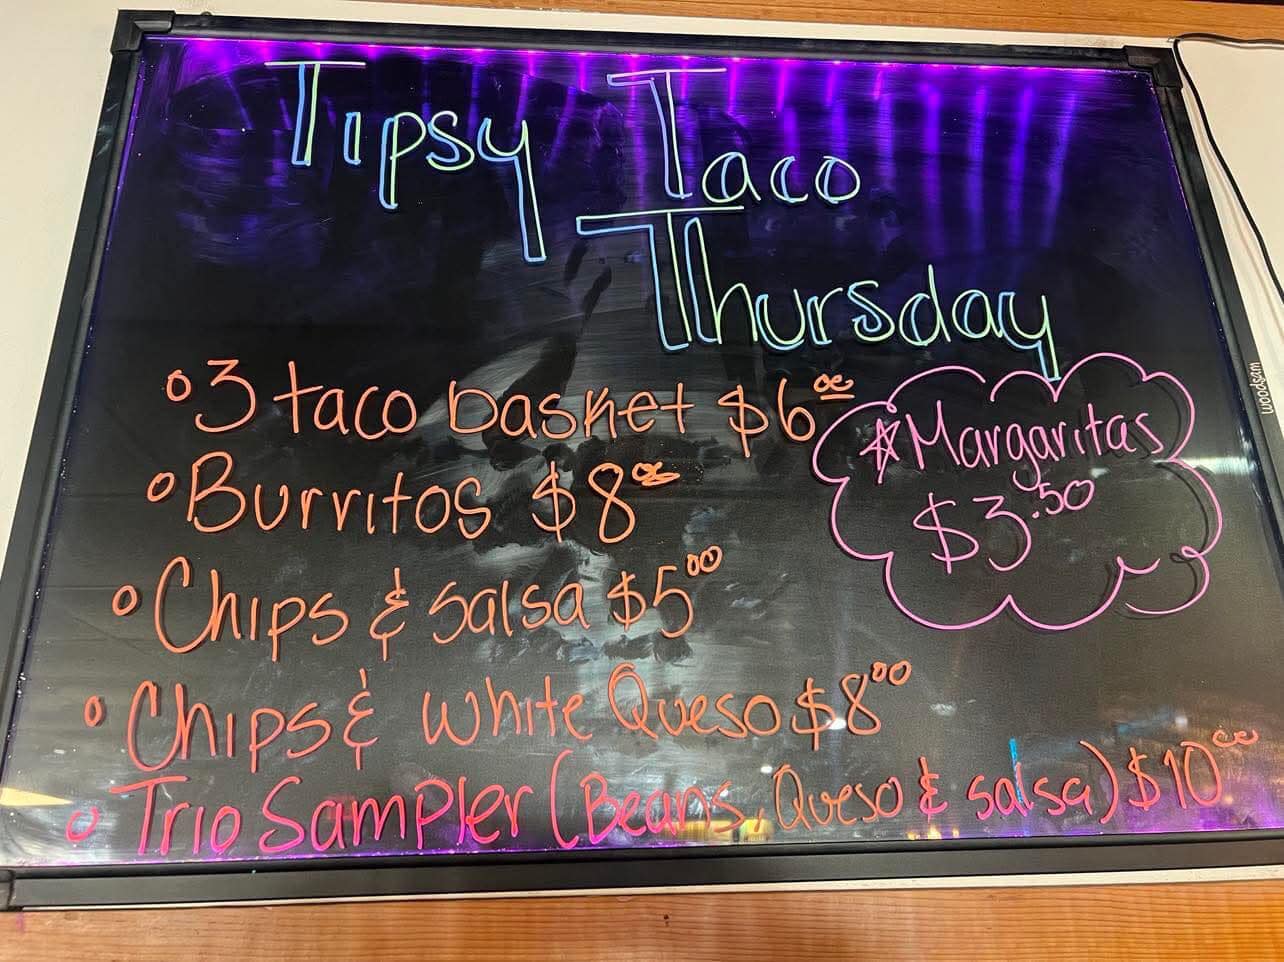 Tipsy Taco
Thursday
3 taco basket $6.00
Burritos $8.00
Chips & salsa $5.00
Chips & white Queso $8.00
Trio Sampler (Beans, Queso & salsa) $10.00
Margaritas
$3.50
woodsam